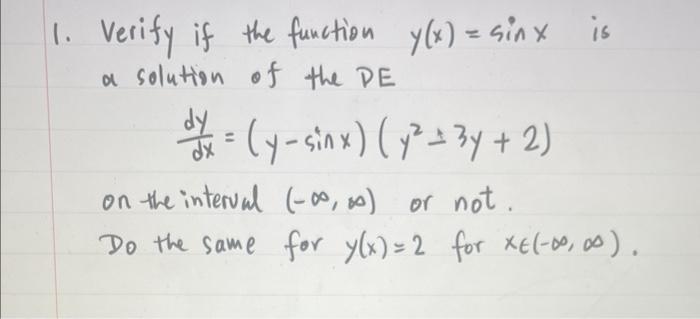 1. Verify if the function y(x) = sin x is
a solution of the DE
dy/dx = (y - sin x) (y² - 3y + 2)
on the interval (-∞, ∞) or not.
Do the same for y(x) = 2 for x∈(-∞, ∞).